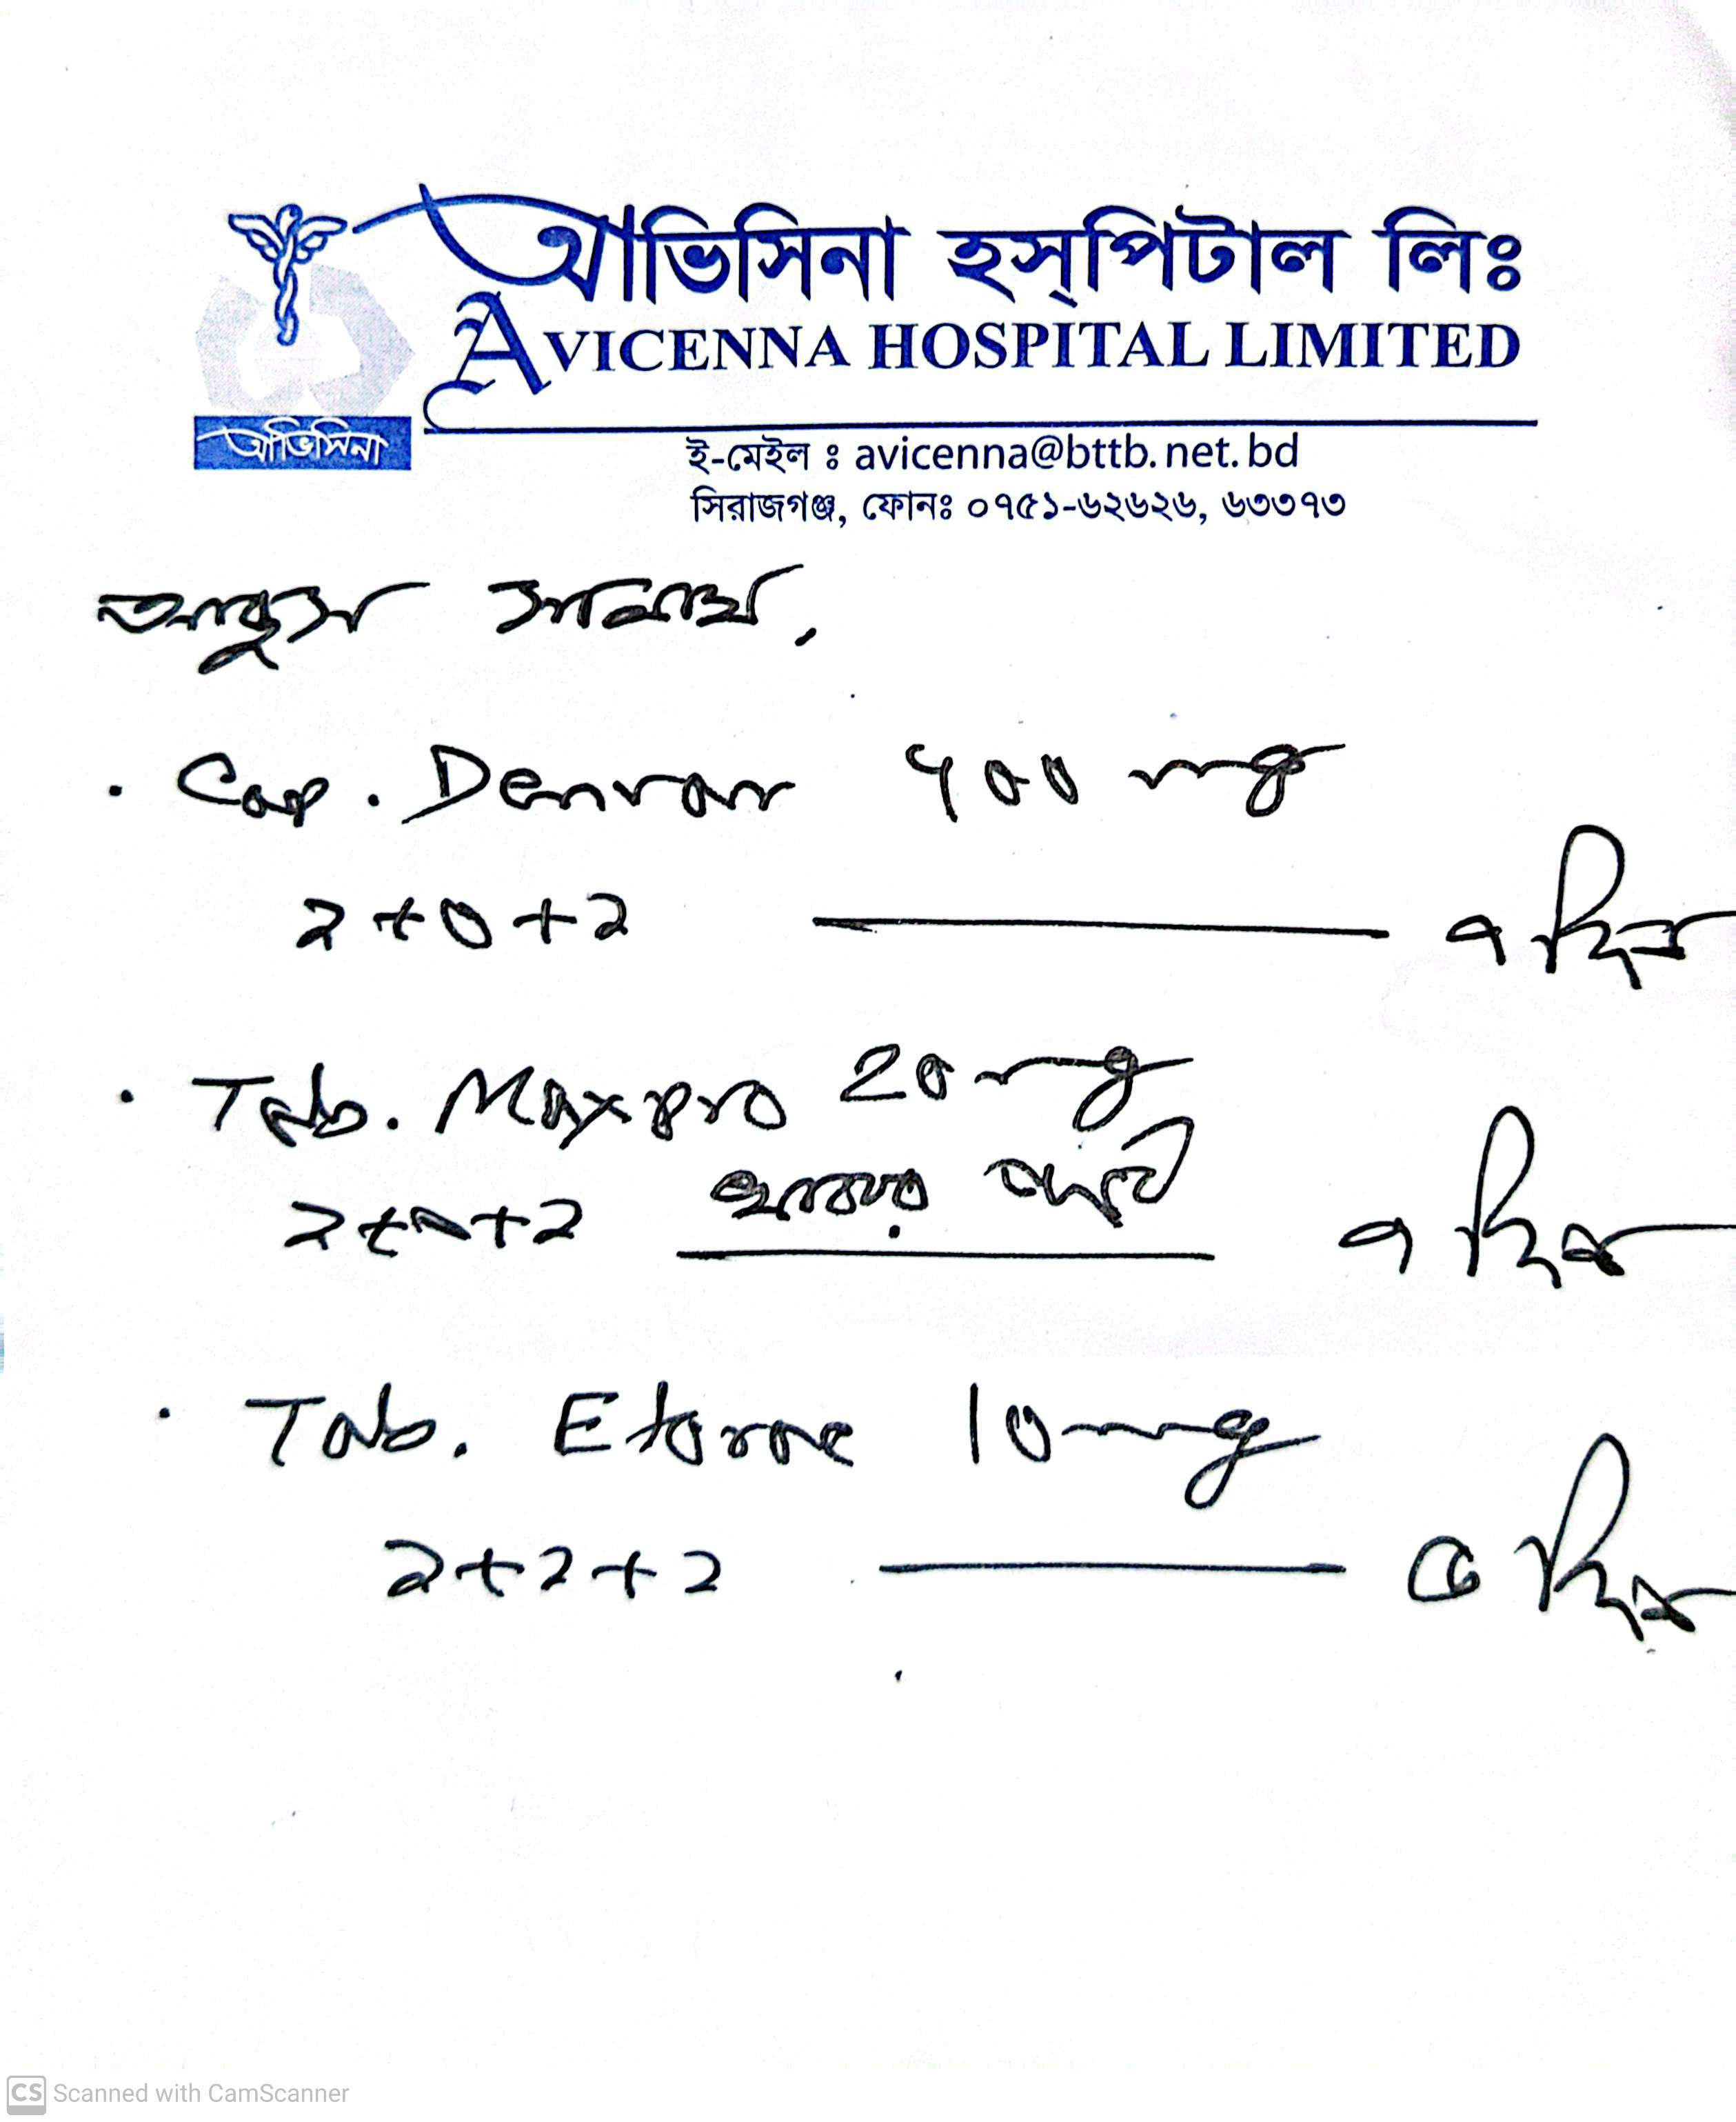 আভিসিনা হস্পিটাল লিঃ
AVICENNA HOSPITAL LIMITED
আভিসিনা
ই-মেইল ঃ avicenna@bttb.net.bd
সিরাজগঞ্জ, ফোনঃ ০৭৫১-৬২৬২৬, ৬৩৩৭৩
আব্দুস সালাম,
. Cap. 400 mg
১+০+১ ৭ দিন
. Tab. Maxpro 20 mg
১+০+১ খাবার আগে ৭ দিন
. Tab. Etorac 10mg
১+১+১ ৫ দিন
CS Scanned with CamScanner